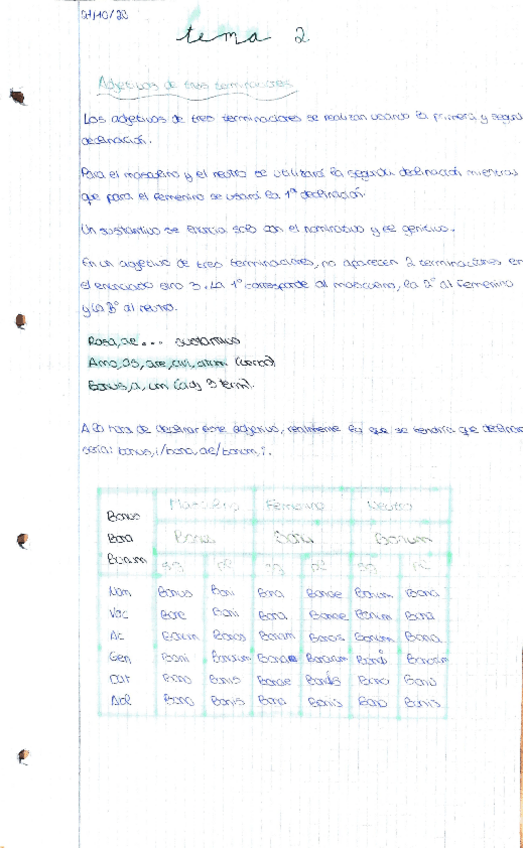 tema 2
Adjetivos de tres terminaciones
Los adjetivos de tres terminaciones se realizan usando la primera y segun
declinación.
Para el masculino y el neutro se utilizará la segunda declinación mientras
que para el femenino se usará la 1ª declinación.
Un sustantivo se enuncia solo con el nominativo y el genitivo.
En un adjetivo de tres terminaciones, no aparecen 2 terminaciones en
el enunciado sino 3. La 1ª corresponde al masculino, la 2ª al femenino
y la 3ª al neutro.
Rosa, ae... sustantivo
Amo, as, are, avi, atum. (verbo)
Bonus, a, um (adj 3 term).
A la hora de declinar este adjetivo, realmente lo que se tendría que declinar
sería: bonus, i/bona, ae/bonum, i.
Masculino Femenino Neutro
Bonus
Bona Bona Bonum
Bonum sg pl sg pl sg pl
Nom Bonus Boni Bona Bonae Bonum Bona
Voc Bone Boni Bona Bonae Bonum Bona
Ac Bonum Bonos Bonam Bonas Bonum Bona
Gen Boni Bonorum Bonae Bonarum Boni Bonorum
Dat Bono Bonis Bonae Bonis Bono Bonis
Abl Bono Bonis Bona Bonis Bono Bonis